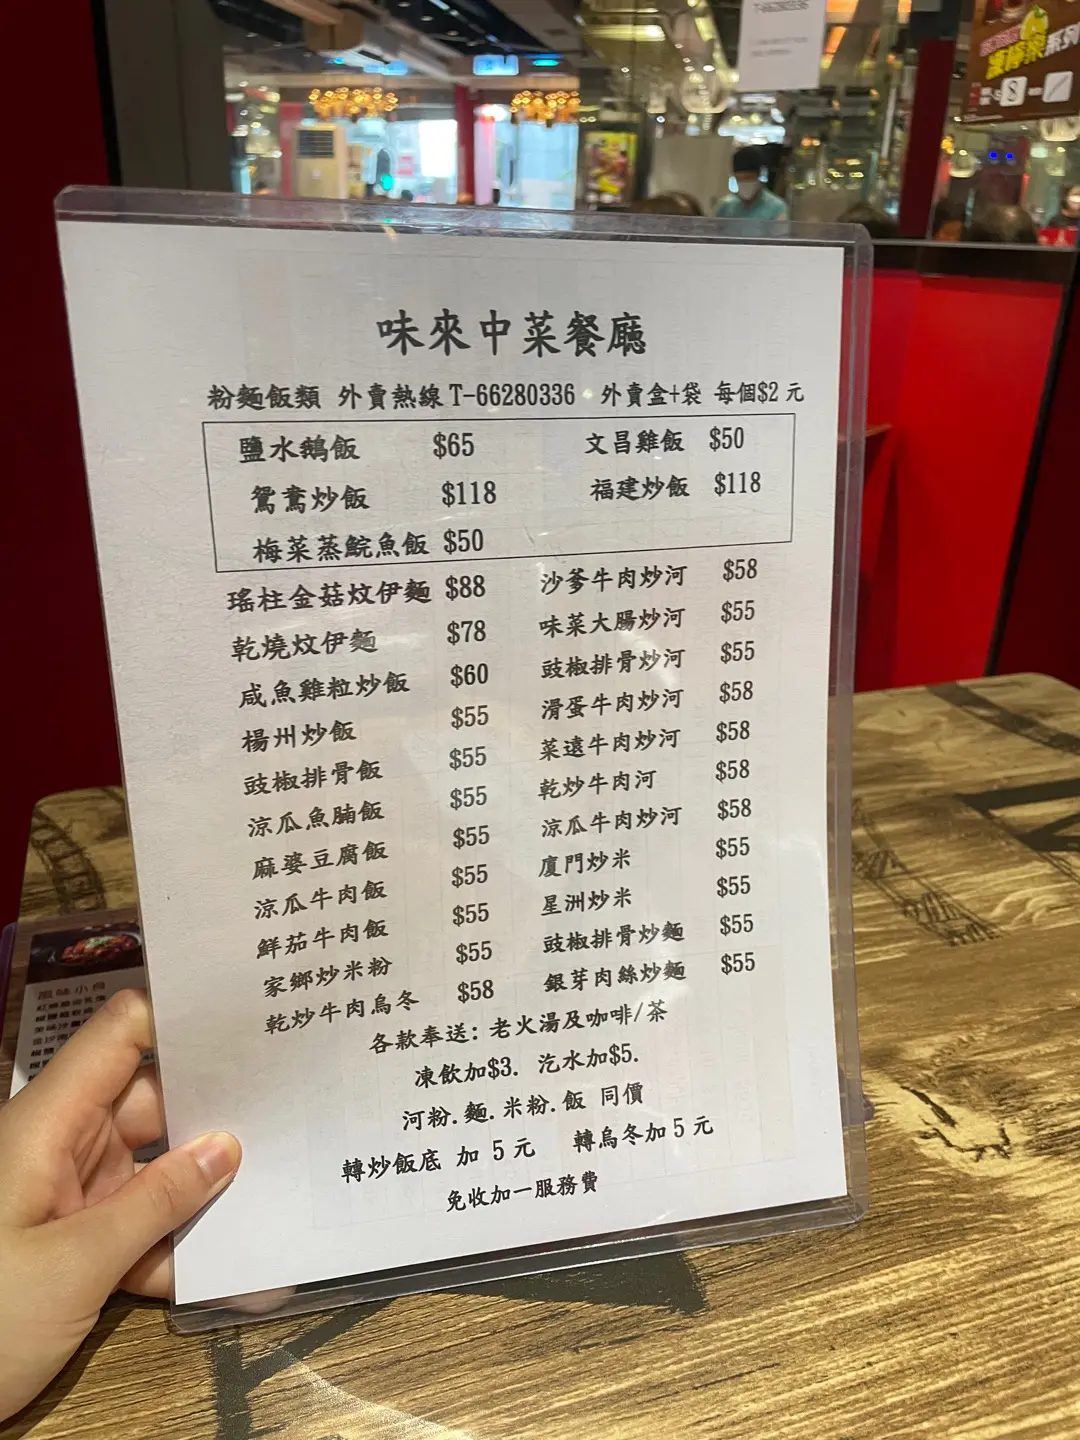 T-66280336
凍檸茶系列
味來中菜餐廳
粉麵飯類 外賣熱線T-66280336 外賣盒+袋 每個$2元
鹽水鵝飯 $65 文昌雞飯 $50
鴛鴦炒飯 $118 福建炒飯 $118
梅菜蒸鯇魚飯 $50
瑤柱金菇炆伊麵 $88 沙爹牛肉炒河 $58
乾燒炆伊麵 $78 味菜大腸炒河 $55
咸魚雞粒炒飯 $60 豉椒排骨炒河 $55
楊州炒飯 $55 滑蛋牛肉炒河 $58
豉椒排骨飯 $55 菜遠牛肉炒河 $58
涼瓜魚腩飯 $55 乾炒牛肉河 $58
麻婆豆腐飯 $55 涼瓜牛肉炒河 $58
涼瓜牛肉飯 $55 廈門炒米 $55
鮮茄牛肉飯 $55 星洲炒米 $55
家鄉炒米粉 $55 豉椒排骨炒麵 $55
乾炒牛肉烏冬 $58 銀芽肉絲炒麵 $55
各款奉送: 老火湯及咖啡/茶
凍飲加$3. 汽水加$5.
河粉.麵.米粉.飯 同價
轉炒飯底 加 5 元 轉烏冬加 5 元
免收加一服務費
風味小食